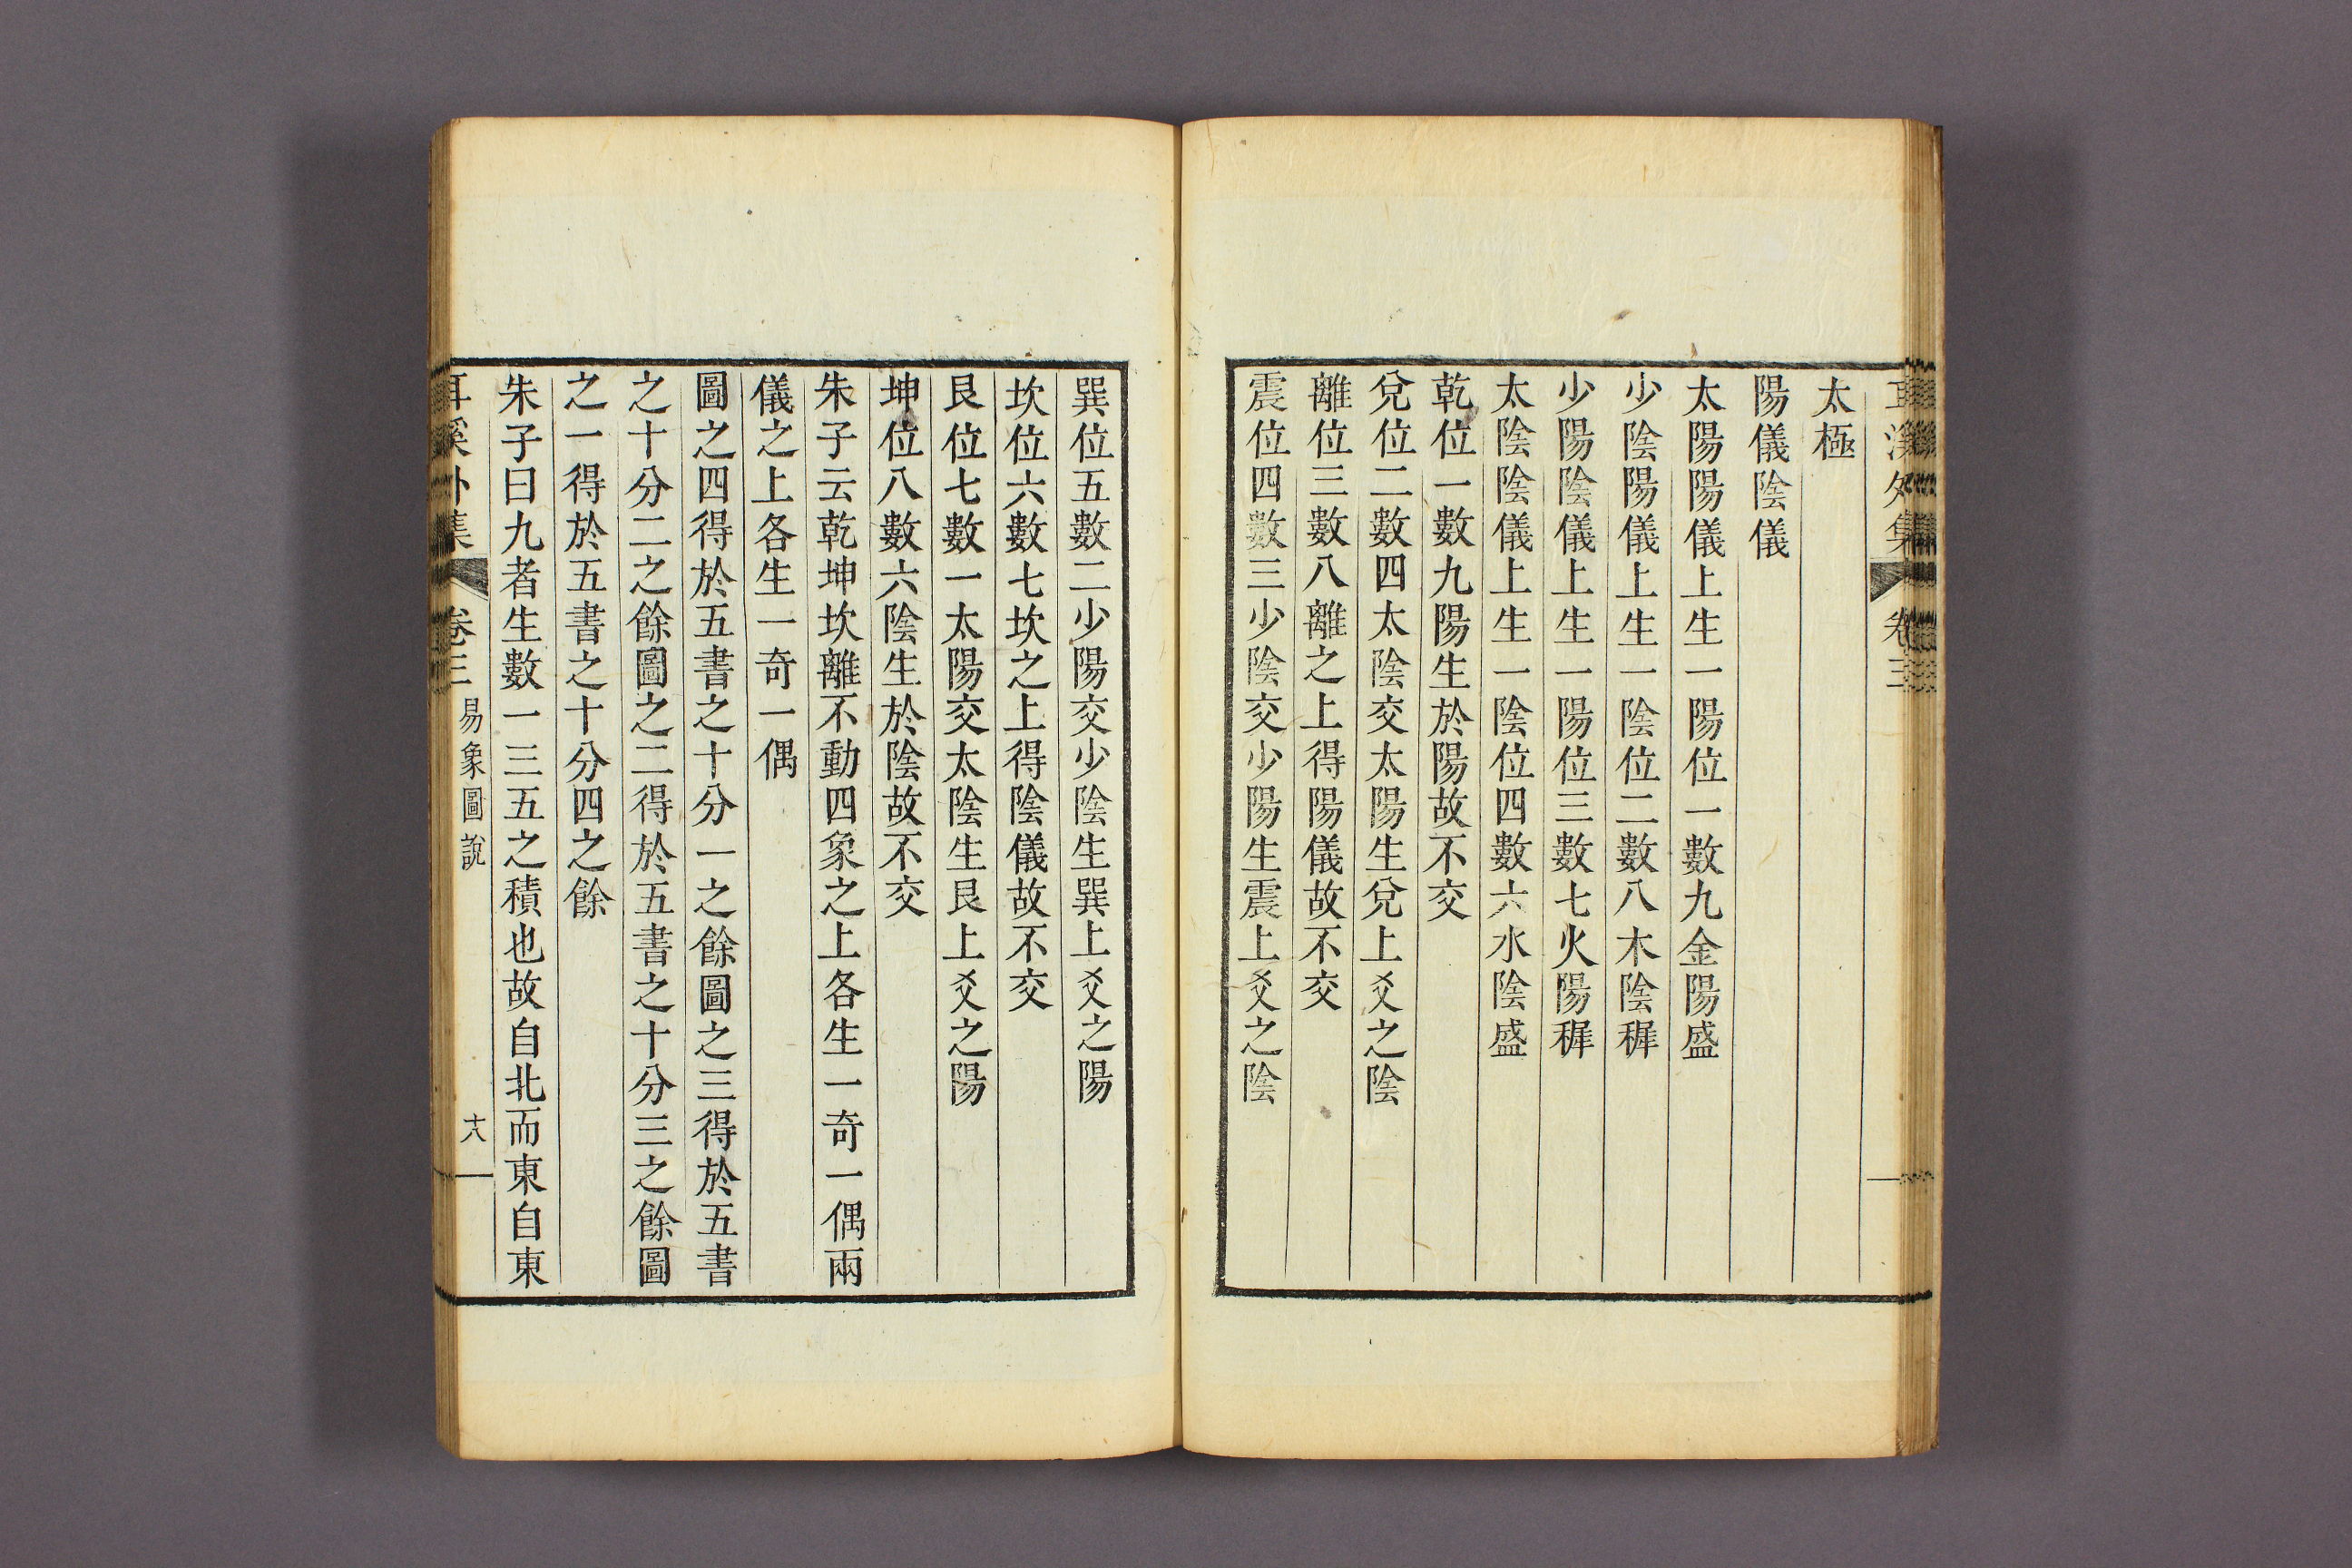 太極
陽儀陰儀
太陽陽儀上生一陽位一數九金陽盛
少陰陽儀上生一陰位二數八木陰穉
少陽陰儀上生一陽位三數七火陽穉
太陰陰儀上生一陰位四數六水陰盛
乾位一數九陽生於陽故不交
兌位二數四太陰交太陽生兌上爻之陰
離位三數八離之上得陽儀故不交
震位四數三少陰交少陽生震上爻之陰
巽位五數二少陽交少陰生巽上爻之陽
坎位六數七坎之上得陰儀故不交
艮位七數一太陽交太陰生艮上爻之陽
坤位八數六陰生於陰故不交
朱子云乾坤坎離不動四象之上各生一奇一偶兩
儀之上各生一奇一偶
圖之四得於五書之十分一之餘圖之三得於五書
之十分二之餘圖之二得於五書之十分三之餘圖
之一得於五書之十分四之餘
朱子曰九者生數一三五之積也故自北而東自東
耳溪外集 卷三 易象圖說 十八